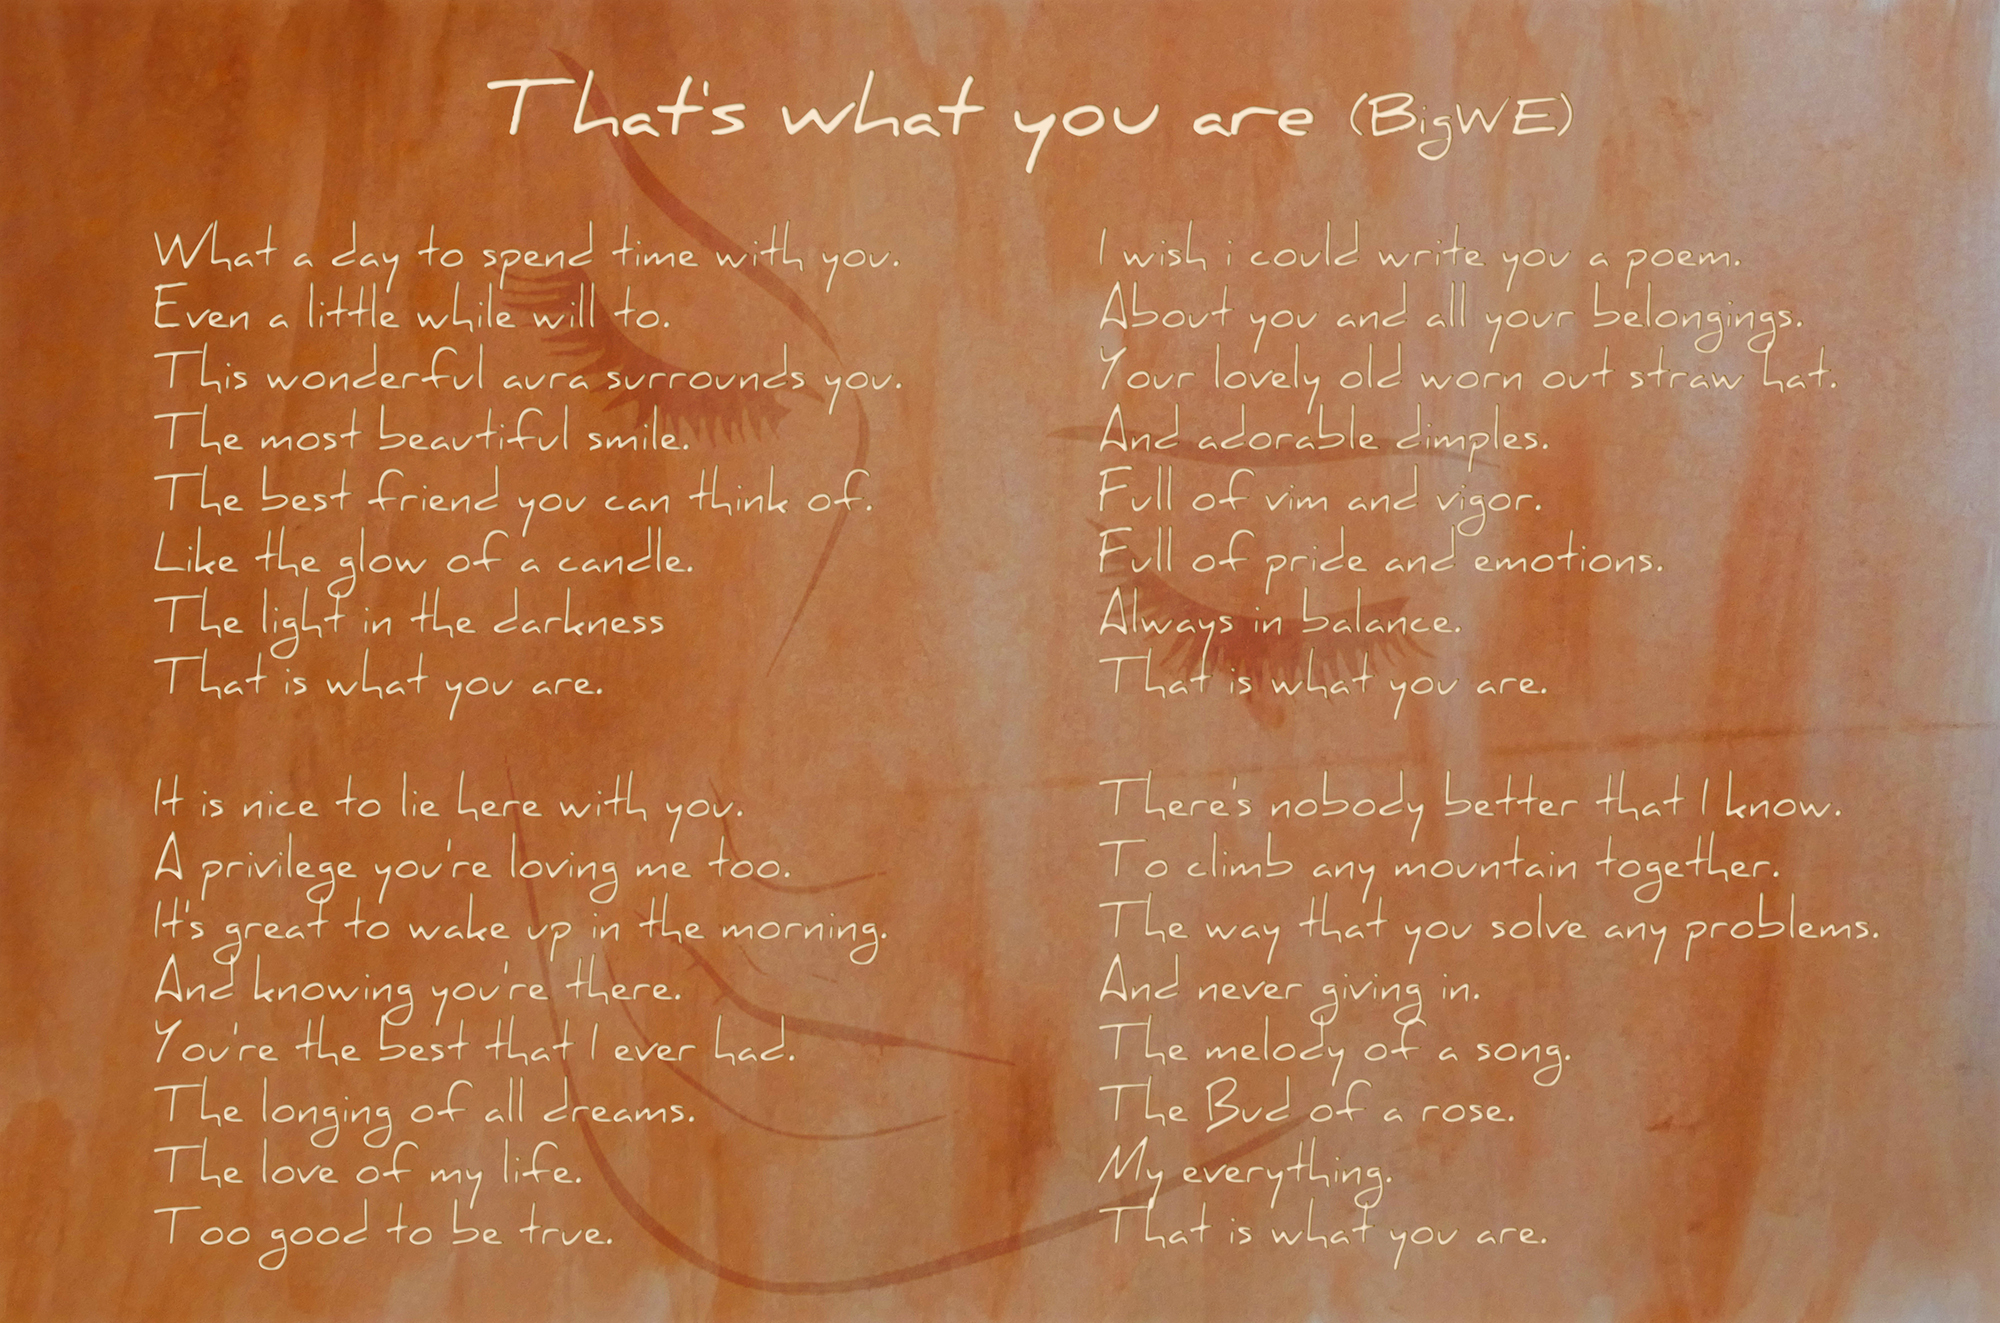 That's what you are (BigWE)
What a day to spend time with you.
Even a little while will to.
This wonderful aura surrounds you.
The most beautiful smile.
The best friend you can think of.
Like the glow of a candle.
The light in the darkness
That is what you are.
It is nice to lie here with you.
A privilege you're loving me too.
It's great to wake up in the morning.
And knowing you're there.
You're the best that I ever had.
The longing of all dreams.
The love of my life.
Too good to be true.
I wish i could write you a poem.
About you and all your belongings.
Your lovely old worn out straw hat.
And adorable dimples.
Full of vim and vigor.
Full of pride and emotions.
Always in balance.
That is what you are.
There's nobody better that I know.
To climb any mountain together.
The way that you solve any problems.
And never giving in.
The melody of a song.
The Bud of a rose.
My everything.
That is what you are.